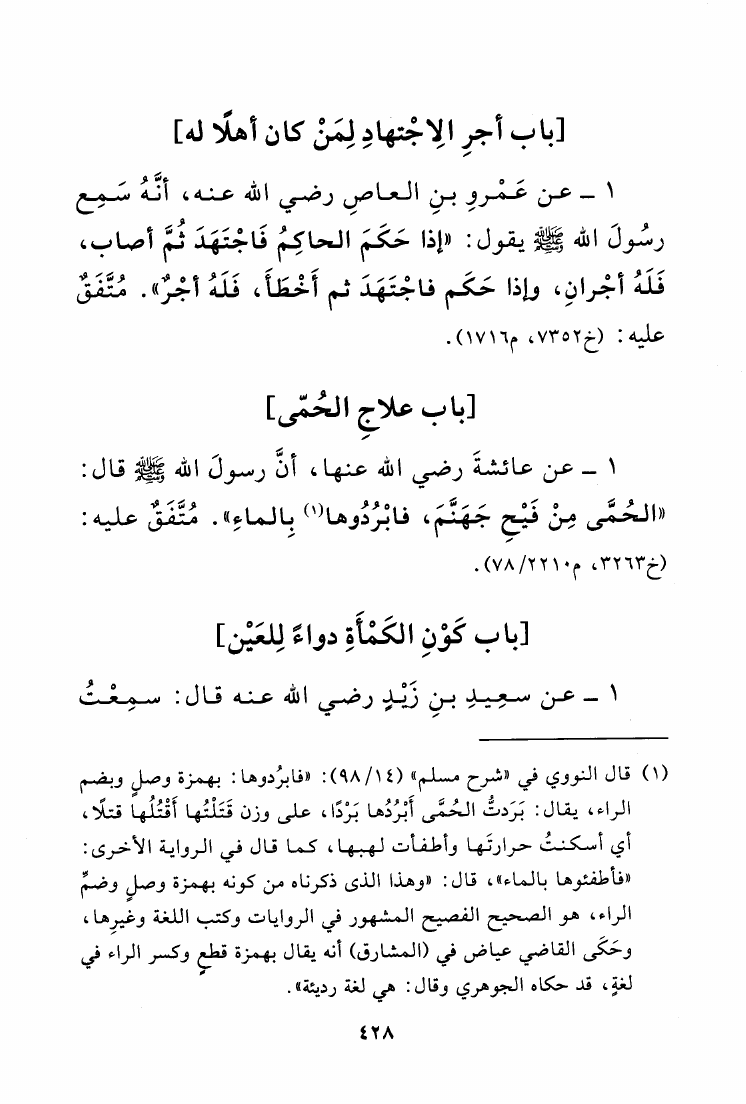 [باب أجرِ الِاجْتهادِ لِمَنْ كان أهلًا له]
١ ـ عن عَمْرِو بنِ العاصِ رضي الله عنه، أنَّهُ سَمِع
رسُولَ الله ﷺ يقول: «إذا حَكَمَ الحاكِمُ فَاجْتَهَدَ ثُمَّ أصاب،
فَلَهُ أجْرانِ، وإذا حَكَم فاجْتَهَدَ ثم أَخْطَأَ، فَلَهُ أجْرٌ». مُتَّفَقٌ
عليه: (خ٧٣٥٢، م١٧١٦).
[باب علاجِ الحُمّى]
١ ـ عن عائشةَ رضي الله عنها، أنَّ رسولَ الله ﷺ قال:
«الحُمَّى مِنْ فَيْحِ جَهَنَّمَ، فابْرُدُوها(١) بِالماءِ». مُتَّفَقٌ عليه:
(خ٣٢٦٣، م٧٨/٢٢١٠).
[باب كَوْنِ الكَمْأَةِ دواءً لِلعَيْن]
١ ـ عن سعِيدِ بنِ زَيْدٍ رضي الله عنه قال: سمِعْتُ
(١) قال النووي في «شرح مسلم» (٩٨/١٤): «فابرُدوها: بهمزة وصلٍ وبضم
الراء، يقال: بَرَدتُّ الحُمَّى أَبْرُدُها بَرْدًا، على وزن قَتَلْتُها أَقْتُلُها قتلًا،
أي أسكنتُ حرارتَها وأطفأت لهبها، كما قال في الرواية الأخرى:
«فأطفئوها بالماء»، قال: «وهذا الذى ذكرناه من كونه بهمزة وصلٍ وضمِّ
الراء، هو الصحيح الفصيح المشهور في الروايات وكتب اللغة وغيرِها،
وحَكَى القاضي عياض في (المشارق) أنه يقال بهمزة قطعٍ وكسر الراء في
لغةٍ، قد حكاه الجوهري وقال: هي لغة رديئة».
٤٢٨